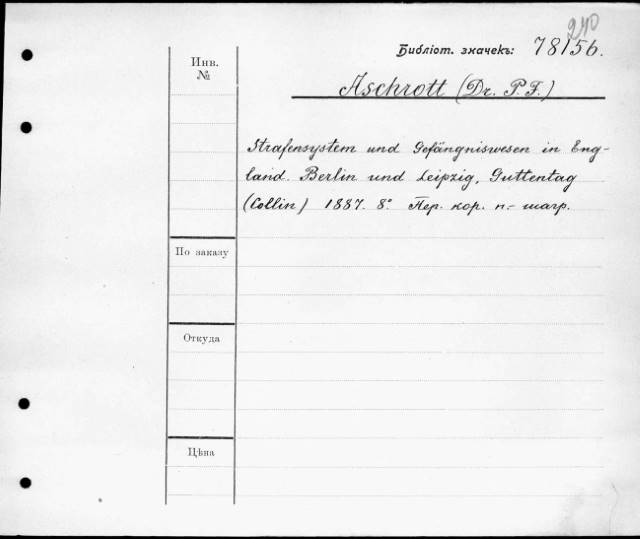 240
Библіот. значекъ: 78156.
Инв.
№
Aschrott (Dr. P. F.)
Strafensystem und Gefängniswesen in Eng-
land. Berlin und Leipzig, Guttentag
(Collin) 1887. 8° Пер. кор. п.- шагр.
По заказу
Откуда
Цѣна